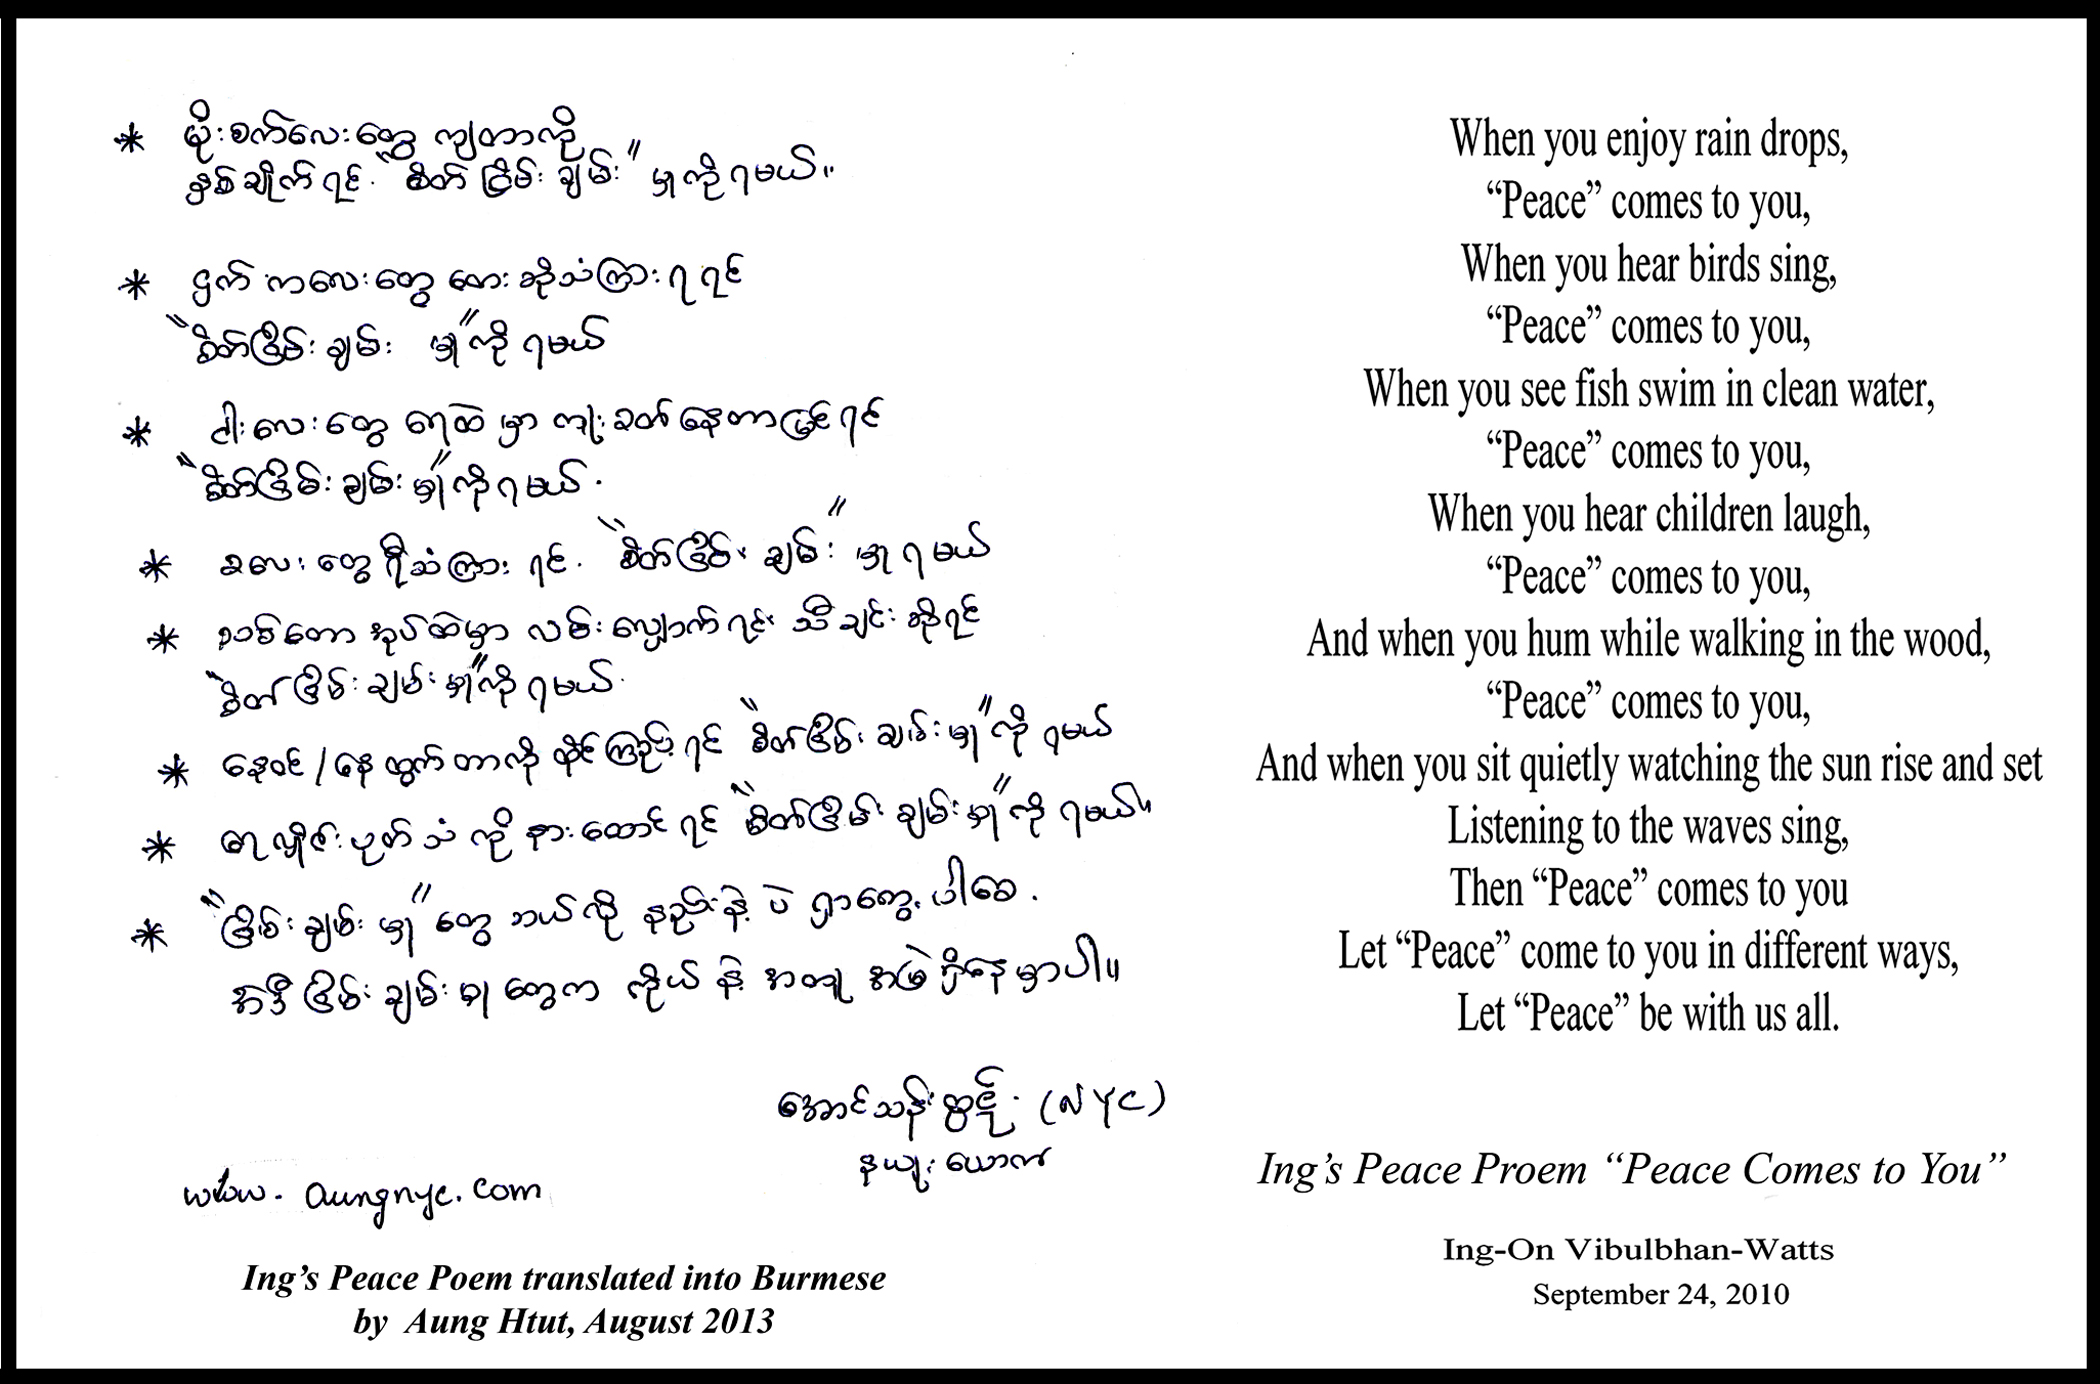 * မိုးစက်လေးတွေ ကျတာကို
နှစ်ချိုက်ရင် "စိတ်ငြိမ်းချမ်း" မှုကိုရမယ်။
* ငှက်ကလေးတွေ တေးဆိုသံကြားရရင်
"စိတ်ငြိမ်းချမ်း မှု"ကိုရမယ်
* ငါးလေးတွေ ရေထဲမှာ ကူးခတ်နေတာမြင်ရင်
"စိတ်ငြိမ်းချမ်းမှု"ကိုရမယ်.
* ခလေးတွေရီသံကြားရင်. "စိတ်ငြိမ်းချမ်း"မှုရမယ်
* သစ်တောအုပ်ထဲမှာ လမ်းလျှောက်ရင်း သီချင်းဆိုရင်
"စိတ်ငြိမ်းချမ်းမှု"ကိုရမယ်.
* နေဝင်/နေထွက်တာကို ထိုင်ကြည့်ရင် "စိတ်ငြိမ်းချမ်းမှု"ကိုရမယ်
* ရေလှိုင်းပုတ်သံကို နားထောင်ရင် "စိတ်ငြိမ်းချမ်းမှု"ကိုရမယ်။
* "ငြိမ်းချမ်းမှု"တွေ ဘယ်လိုနည်းနဲ့ပဲ ရှာတွေ့ပါစေ.
အဲဒီငြိမ်းချမ်းမှုတွေက ကိုယ်နဲ့အတူ အမြဲရှိနေမှာပါ။
(NYC)
နယူးယောက်
www.aungnyc.com
Ing's Peace Poem translated into Burmese
by Aung Htut, August 2013
When you enjoy rain drops,
“Peace” comes to you,
When you hear birds sing,
“Peace” comes to you,
When you see fish swim in clean water,
“Peace” comes to you,
When you hear children laugh,
“Peace” comes to you,
And when you hum while walking in the wood,
“Peace” comes to you,
And when you sit quietly watching the sun rise and set
Listening to the waves sing,
Then “Peace” comes to you
Let “Peace” come to you in different ways,
Let “Peace” be with us all.
Ing’s Peace Proem “Peace Comes to You”
Ing-On Vibulbhan-Watts
September 24, 2010